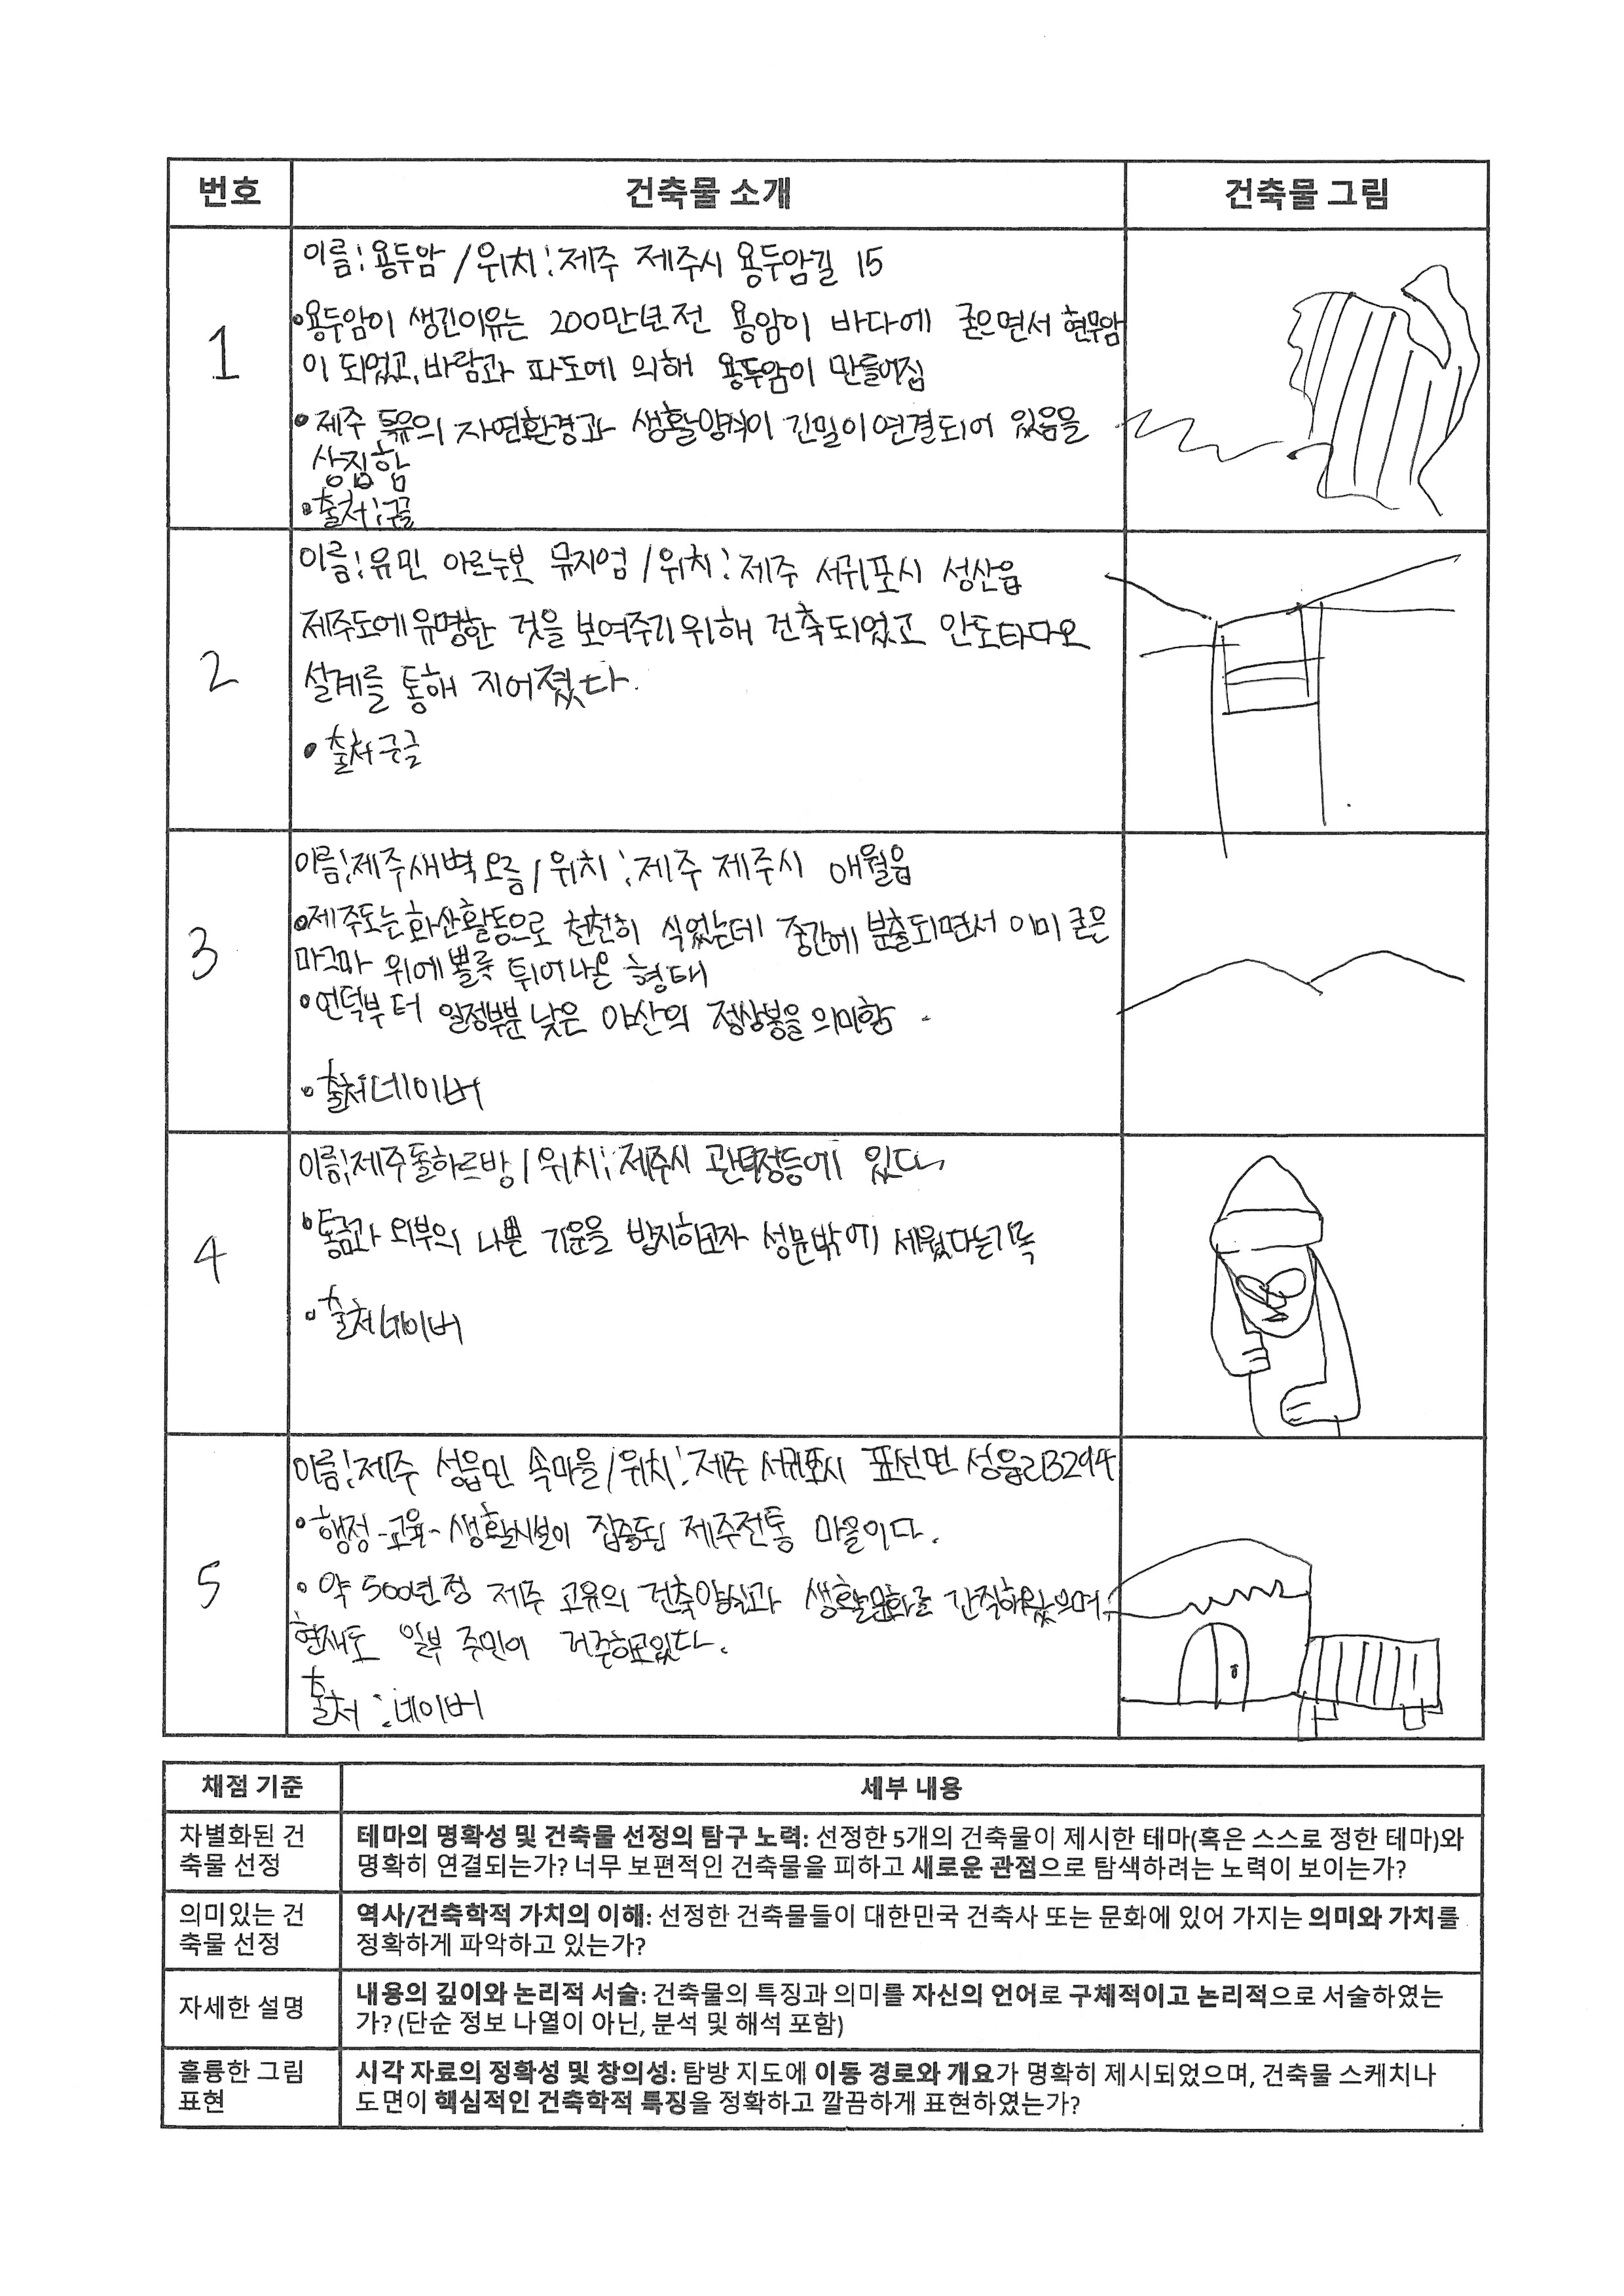 번호 건축물 소개 건축물 그림
1
이름: 용두암 / 위치: 제주 제주시 용두암길 15
•용두암이 생긴이유는 200만년전 용암이 바다에 굳으면서 현무암
이 되었고, 바람과 파도에 의해 용두암이 만들어짐
•제주 특유의 자연환경과 생활양식이 긴밀이 연결되어 있음을
상징함
•출처: 구글
2
이름: 유민 아르누보 뮤지엄 / 위치: 제주 서귀포시 성산읍
제주도에 유명한 것을 보여주기위해 건축되었고 안도타다오
설계를 통해 지어졌다.
•출처 구글
3
이름: 제주새벽오름 / 위치: 제주 제주시 애월읍
•제주도는 화산활동으로 천천히 식었는데 중간에 분출되면서 이미 굳은
마그마 위에 뽈룩 튀어나온 형태
•언덕부터 일정부분 낮은 야산의 정상봉을 의미함.
•출처 네이버
4
이름: 제주돌하르방 / 위치: 제주시 관덕정등에 있다
•통금과 외부의 나쁜 기운을 방지하고자 성문밖에 세웠다는기록
•출처 네이버
5
이름: 제주 성읍민 속마을 / 위치: 제주 서귀포시 표선면 성읍리3294
•행정-교육-생활시설이 집중된 제주전통 마을이다.
•약 500년정 제주 고유의 건축양식과 생활문화를 간직해왔으며,
현재도 일부 주민이 거주하고있다.
출처: 네이버
채점 기준 세부 내용
차별화된 건
축물 선정
테마의 명확성 및 건축물 선정의 탐구 노력: 선정한 5개의 건축물이 제시한 테마(혹은 스스로 정한 테마)와
명확히 연결되는가? 너무 보편적인 건축물을 피하고 새로운 관점으로 탐색하려는 노력이 보이는가?
의미있는 건
축물 선정
역사/건축학적 가치의 이해: 선정한 건축물들이 대한민국 건축사 또는 문화에 있어 가지는 의미와 가치를
정확하게 파악하고 있는가?
자세한 설명
내용의 깊이와 논리적 서술: 건축물의 특징과 의미를 자신의 언어로 구체적이고 논리적으로 서술하였는
가? (단순 정보 나열이 아닌, 분석 및 해석 포함)
훌륭한 그림
표현
시각 자료의 정확성 및 창의성: 탐방 지도에 이동 경로와 개요가 명확히 제시되었으며, 건축물 스케치나
도면이 핵심적인 건축학적 특징을 정확하고 깔끔하게 표현하였는가?